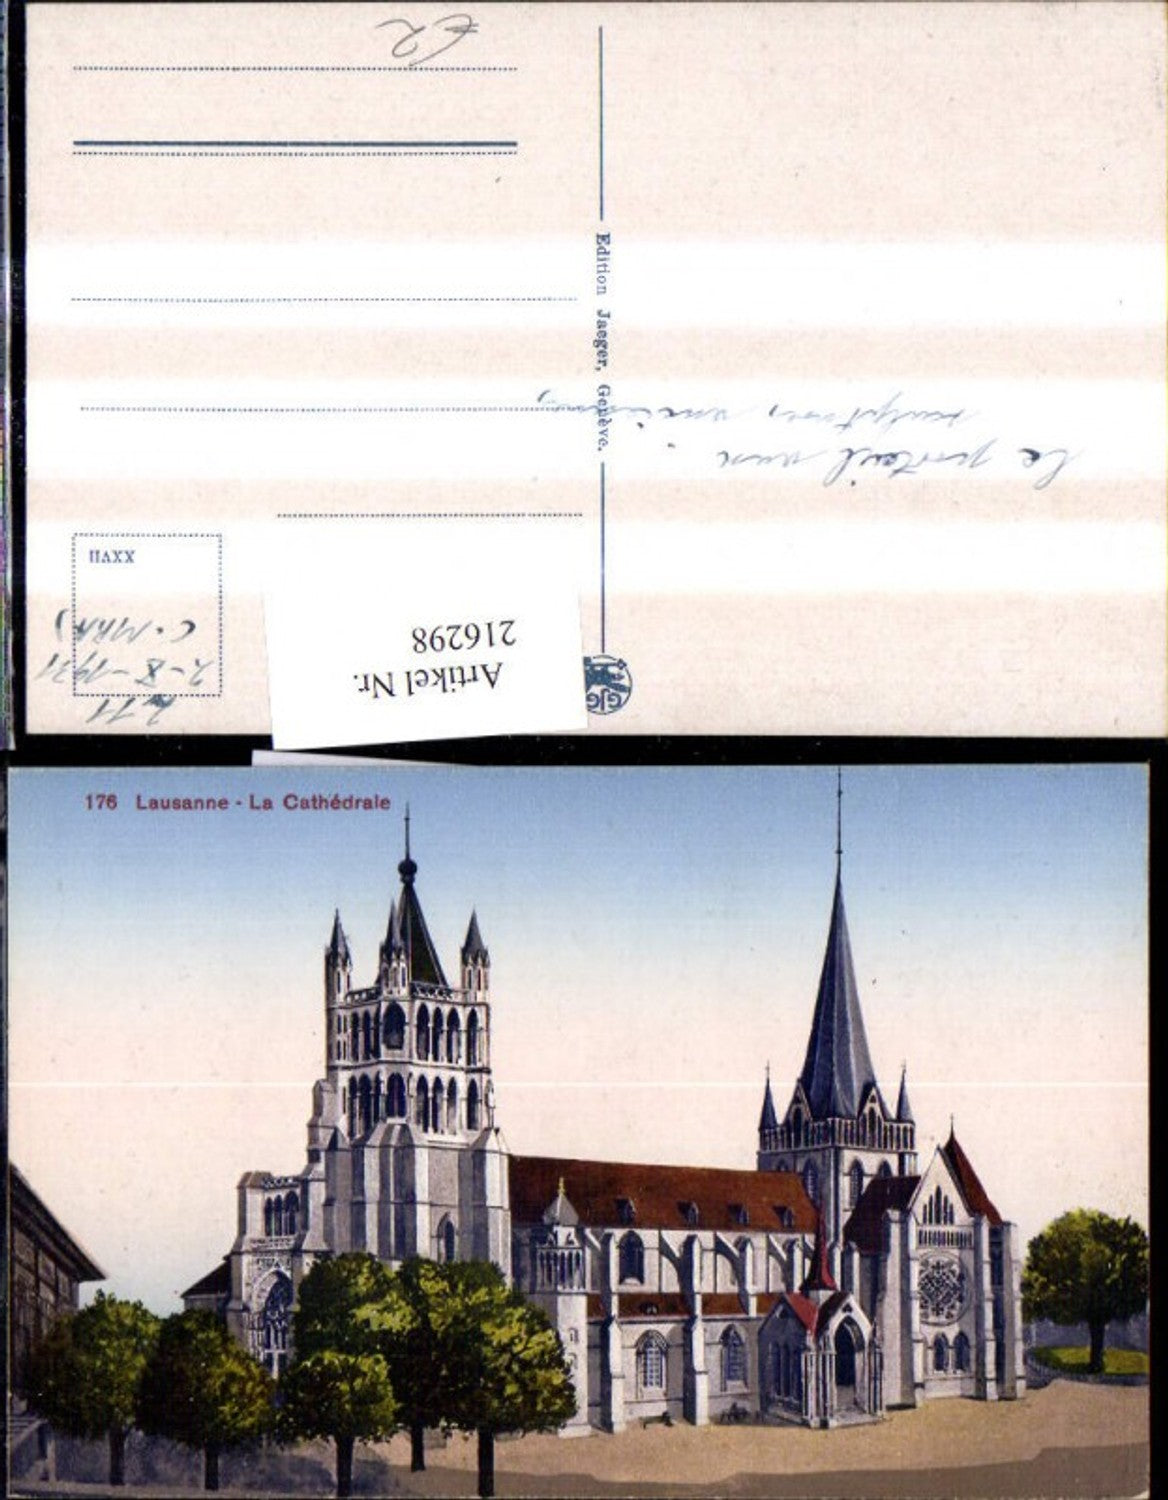 €2
Edition Jaeger, Genève.
Le portail avec
sculptures anciennes
XXVII
C. MRA)
2-X-1931
N 11
216298
Artikel Nr.
GJG
176 Lausanne - La Cathédrale